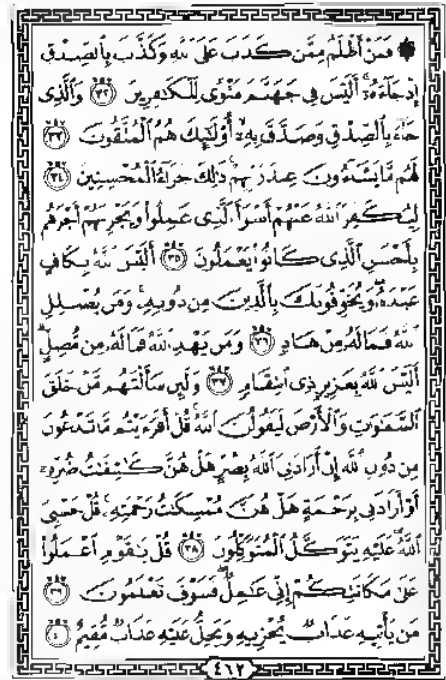 ۞ فَمَنْ أَظْلَمُ مِمَّن كَذَبَ عَلَى ٱللَّهِ وَكَذَّبَ بِٱلصِّدْقِ
إِذْ جَآءَهُۥٓ ۚ أَلَيْسَ فِى جَهَنَّمَ مَثْوًى لِّلْكَـٰفِرِينَ ٣٢ وَٱلَّذِى
جَآءَ بِٱلصِّدْقِ وَصَدَّقَ بِهِۦٓ ۙ أُو۟لَـٰٓئِكَ هُمُ ٱلْمُتَّقُونَ ٣٣
لَهُم مَّا يَشَآءُونَ عِندَ رَبِّهِمْ ۚ ذَٰلِكَ جَزَآءُ ٱلْمُحْسِنِينَ ٣٤
لِيُكَفِّرَ ٱللَّهُ عَنْهُمْ أَسْوَأَ ٱلَّذِى عَمِلُوا۟ وَيَجْزِيَهُمْ أَجْرَهُم
بِأَحْسَنِ ٱلَّذِى كَانُوا۟ يَعْمَلُونَ ٣٥ أَلَيْسَ ٱللَّهُ بِكَافٍ
عَبْدَهُۥ ۖ وَيُخَوِّفُونَكَ بِٱلَّذِينَ مِن دُونِهِۦ ۚ وَمَن يُضْلِلِ
ٱللَّهُ فَمَا لَهُۥ مِنْ هَادٍ ٣٦ وَمَن يَهْدِ ٱللَّهُ فَمَا لَهُۥ مِن مُّضِلٍّ ۗ
أَلَيْسَ ٱللَّهُ بِعَزِيزٍ ذِى ٱنتِقَامٍ ٣٧ وَلَئِن سَأَلْتَهُم مَّنْ خَلَقَ
ٱلسَّمَـٰوَٰتِ وَٱلْأَرْضَ لَيَقُولُنَّ ٱللَّهُ ۚ قُلْ أَفَرَءَيْتُم مَّا تَدْعُونَ
مِن دُونِ ٱللَّهِ إِنْ أَرَادَنِىَ ٱللَّهُ بِضُرٍّ هَلْ هُنَّ كَـٰشِفَـٰتُ ضُرِّهِۦٓ
أَوْ أَرَادَنِى بِرَحْمَةٍ هَلْ هُنَّ مُمْسِكَـٰتُ رَحْمَتِهِۦ ۚ قُلْ حَسْبِىَ
ٱللَّهُ ۖ عَلَيْهِ يَتَوَكَّلُ ٱلْمُتَوَكِّلُونَ ٣٨ قُلْ يَـٰقَوْمِ ٱعْمَلُوا۟
عَلَىٰ مَكَانَتِكُمْ إِنِّى عَـٰمِلٌ ۖ فَسَوْفَ تَعْلَمُونَ ٣٩
مَن يَأْتِيهِ عَذَابٌ يُخْزِيهِ وَيَحِلُّ عَلَيْهِ عَذَابٌ مُّقِيمٌ ٤٠
٤٦٢